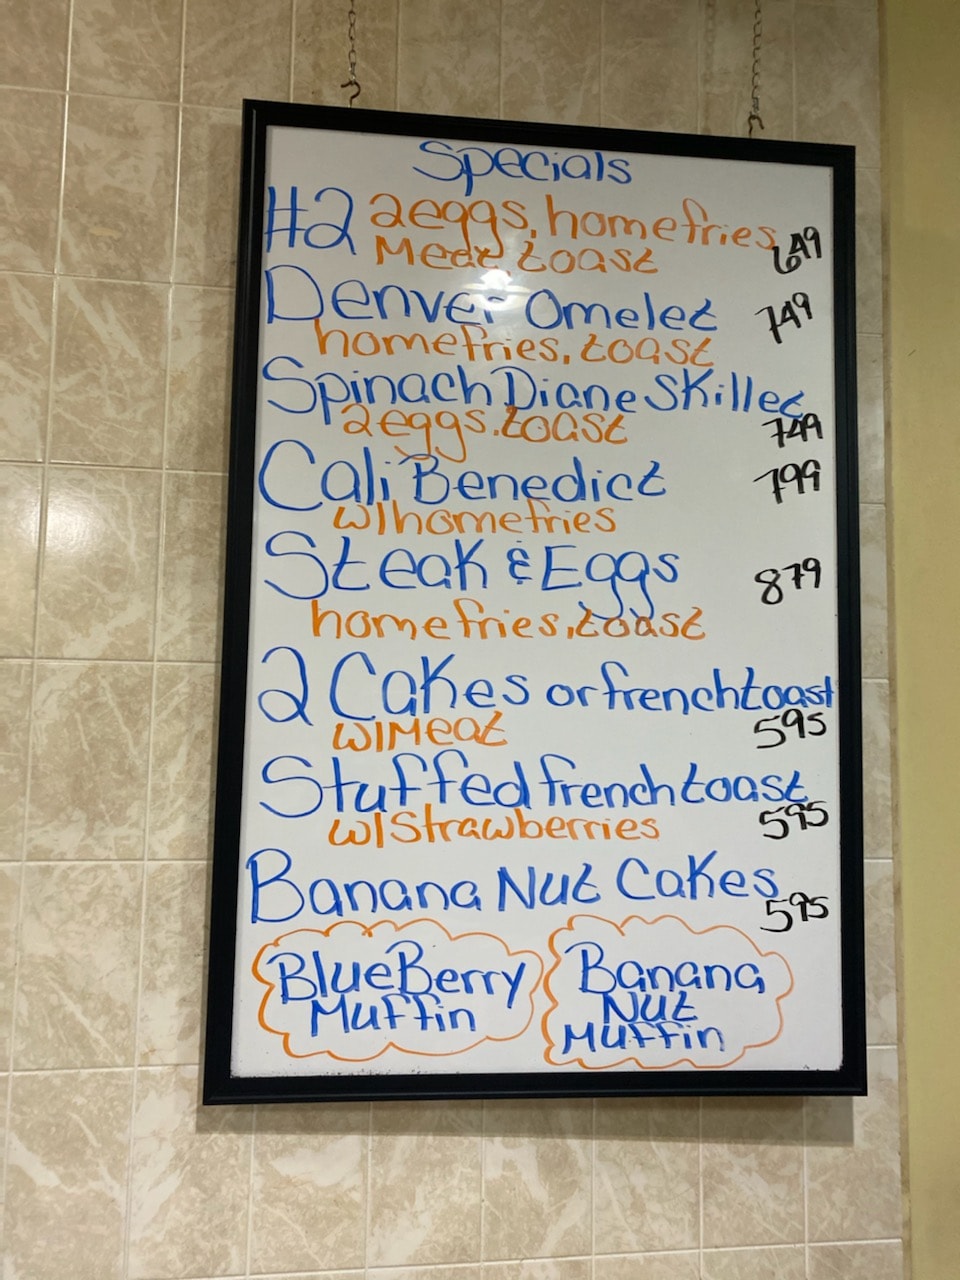 Specials
#2 2eggs, homefries
Meat, toast 649
Denver Omelet 749
homefries, toast
Spinach Diane Skillet
2eggs, toast 749
Cali Benedict 799
w/homefries
Steak & Eggs 879
homefries, toast
2 Cakes or french toast
w/Meat 595
Stuffed french toast
w/Strawberries 595
Banana Nut Cakes
595
BlueBerry
Muffin
Banana
Nut
Muffin